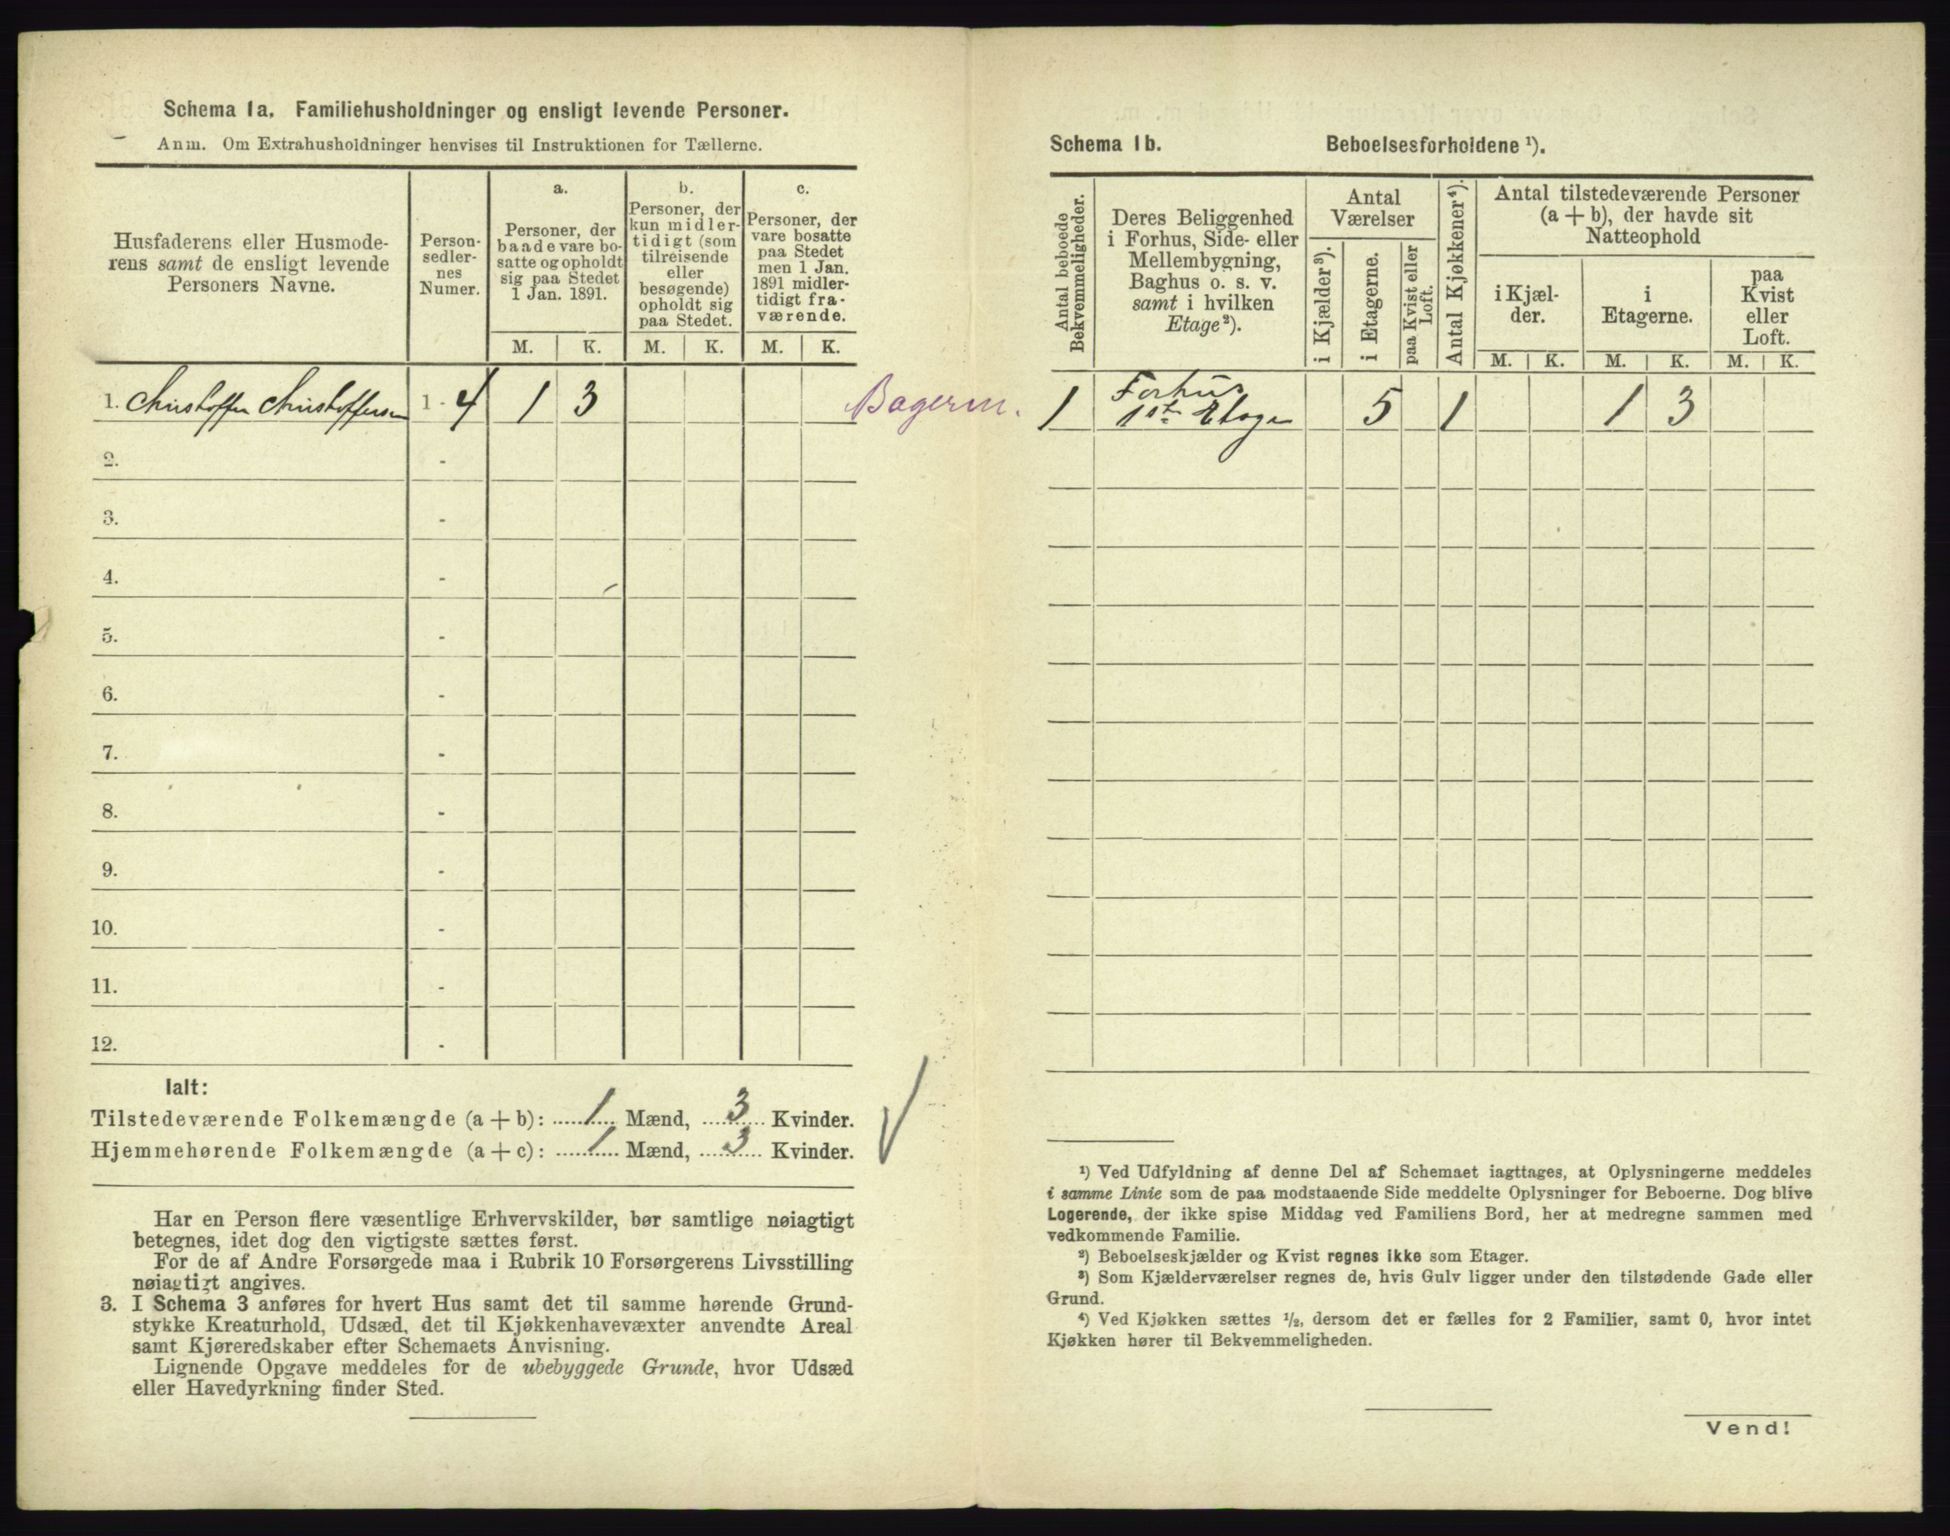 Schema 1a. Familiehusholdninger og ensligt levende Personer.
Anm. Om Extrahusholdninger henvises til Instruktionen for Tællerne.
Husfaderens eller Husmode-
rens samt de ensligt levende
Personers Navne.
Person-
sedler-
nes
Numer.
a.
Personer, der
baade vare bo-
satte og opholdt
sig paa Stedet
1 Jan. 1891.
b.
Personer, der
kun midler-
tidigt (som
tilreisende
eller
besøgende)
opholdt sig
paa Stedet.
c.
Personer, der
vare bosatte
paa Stedet
men 1 Jan.
1891 midler-
tidigt fra-
værende.
M. K. M. K. M. K.
1. Christoffer Christoffersen 1 - 4 1 3 Bagerm.
2. -
3. -
4. -
5. -
6. -
7. -
8. -
9. -
10. -
11. -
12. -
Ialt:
Tilstedeværende Folkemængde (a + b): 1 Mænd, 3 Kvinder.
Hjemmehørende Folkemængde (a + c): 1 Mænd, 3 Kvinder.
Har en Person flere væsentlige Erhvervskilder, bør samtlige nøiagtigt
betegnes, idet dog den vigtigste sættes først.
For de af Andre Forsørgede maa i Rubrik 10 Forsørgerens Livsstilling
nøiagtigt angives.
3. I Schema 3 anføres for hvert Hus samt det til samme hørende Grund-
stykke Kreaturhold, Udsæd, det til Kjøkkenhavevæxter anvendte Areal
samt Kjøreredskaber efter Schemaets Anvisning.
Lignende Opgave meddeles for de ubebyggede Grunde, hvor Udsæd
eller Havedyrkning finder Sted.
Schema 1b. Beboelsesforholdene ¹).
Antal beboede
Bekvemmeligheder.
Deres Beliggenhed
i Forhus, Side- eller
Mellembygning,
Baghus o. s. v.
samt i hvilken
Etage²).
Antal
Værelser
i Kjælder³).
i Etagerne.
paa Kvist eller
Loft.
Antal Kjøkkener⁴).
Antal tilstedeværende Personer
(a + b), der havde sit
Natteophold
i Kjæl-
der.
i
Etagerne.
paa
Kvist
eller
Loft.
M. K. M. K. M. K.
1 Forhus 5 1 1 3
1ste Etage
¹) Ved Udfyldning af denne Del af Schemaet iagttages, at Oplysningerne meddeles
i samme Linie som de paa modstaaende Side meddelte Oplysninger for Beboerne. Dog blive
Logerende, der ikke spise Middag ved Familiens Bord, her at medregne sammen med
vedkommende Familie.
²) Beboelseskjælder og Kvist regnes ikke som Etager.
³) Som Kjælderværelser regnes de, hvis Gulv ligger under den tilstødende Gade eller
Grund.
⁴) Ved Kjøkken sættes ½, dersom det er fælles for 2 Familier, samt 0, hvor intet
Kjøkken hører til Bekvemmeligheden.
Vend!